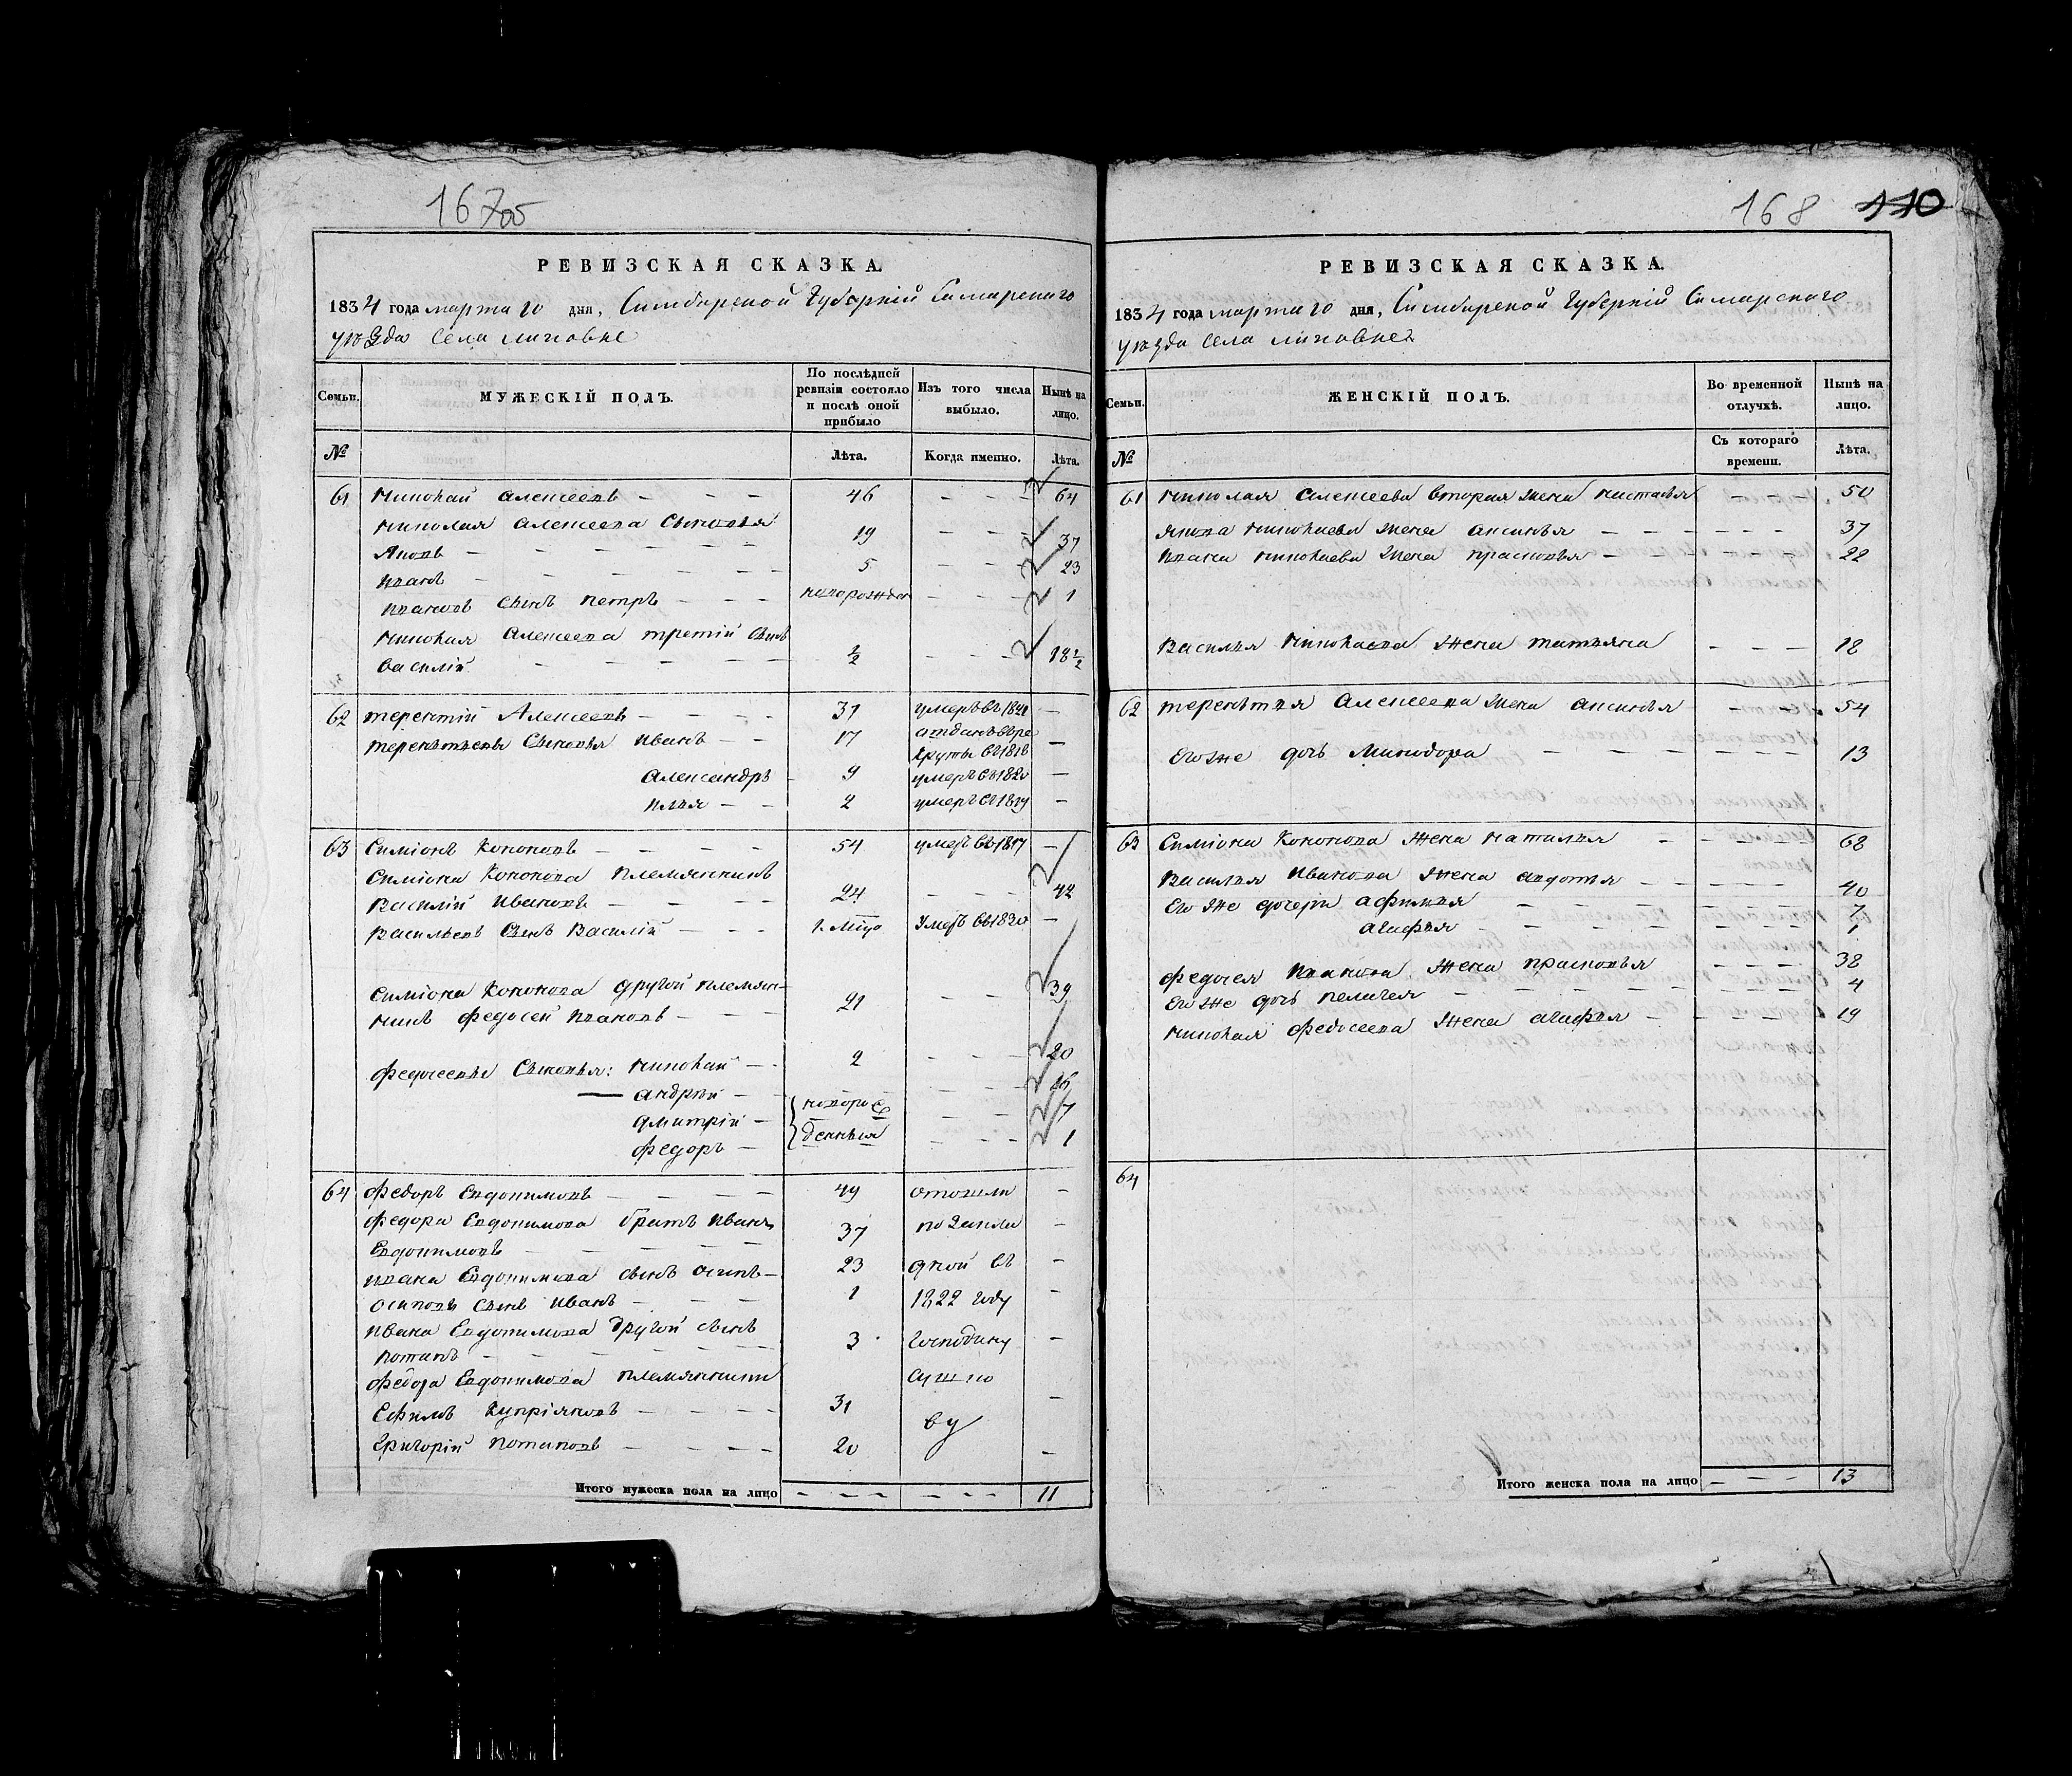 167
РЕВИЗСКАЯ СКАЗКА.
1834 года марта 10 дня, Симбирской Губерній Самарскаго
уѣзда Села
Семьи.
МУЖЕСКІЙ ПОЛЪ.
По послѣдней ревизіи состояло и послѣ оной прибыло
Изъ того числа выбыло.
Нынѣ на лицо.
№
Лѣта.
Когда именно.
Лѣта.
61 Николай Алексеевъ — — — 46 — — — 64
Николая Алексеева Сыновья
Яковъ — — — — — — 19 — — — 37
Иванъ — — — — — — 5 — — — 23
Ивановъ Сынъ Петръ — — — новорожден — — — 1
Николая Алексеева третій Сынъ
Василій — — — — — ½ — — — 18½
62 Терентій Алексеевъ — — — 37 умеръ въ —
Терентьевы Сыновья Иванъ — — 17 отданъ въ ре
круты въ 1818 —
Александръ — 9 умеръ въ 1820 —
Илья — — 2 умеръ въ 1819 —
63 Симіонъ Кононовъ — — — — 54 умеръ въ 1817 —
Симіона Кононова Племянникъ
Василій Ивановъ — — — — 24 — — — 42
Васильевъ Сынъ Василій — — — умеръ въ 1830 —
Симіона Кононова другой племян-
никъ Федосей Ивановъ — — — 21 — — 39
Федосеевы Сыновья: Николай — 2 — — — 20
— Андрей — — новорож — — — 16
Дмитрій — — — — 7
Федоръ — денныя — — — 1
64 Федоръ Евдокимовъ — — — — 49 отошли —
Федора Евдокимова братъ Иванъ
Евдокимовъ — — — — — 37 —
Ивана Евдокимова сынъ Осипъ — 23 въ —
Осиповъ Сынъ Иванъ — — — 1 1822 году —
Ивана Евдокимова другой сынъ
Потапъ — — — — — — 3 господину —
Федора Евдокимова племянники
Ефимъ Купріяновъ — — — — 31 —
Григорій Потаповъ — — — — 20 ву —
Итого мужеска пола на лицо — — — — — — 11
168 110
РЕВИЗСКАЯ СКАЗКА.
1834 года марта 10 дня, Симбирской Губерній Самарскаго
уѣзда Села
Семьи.
ЖЕНСКІЙ ПОЛЪ.
Во временной отлучкѣ.
Нынѣ на лицо.
№
Съ котораго времени.
Лѣта.
61 Николая Алексеева вторая жена Настасья — — — 50
Якова Николаева жена Аксинья — — — — — — 37
Ивана Николаева жена Прасковья — — — — 22
Василья Николаева Жена Татьяна — — — 18
62 Терентья Алексеева жена Аксинья — — 54
Его же дочь Минодора — — — — — — 13
63 Симіона Кононова Жена Наталья — — — — 68
Василья Иванова Жена Авдотья — — — — — 40
Его же дочери Афимья — — — — — — 7
Агафья — — — — — — — 1
Федосея Иванова Жена Прасковья — — — — 38
Его же дочь Пелагея — — — — — — — — 4
Николая Федосеева Жена Агафья — — — — — 19
64
Итого женска пола на лицо — — — 13